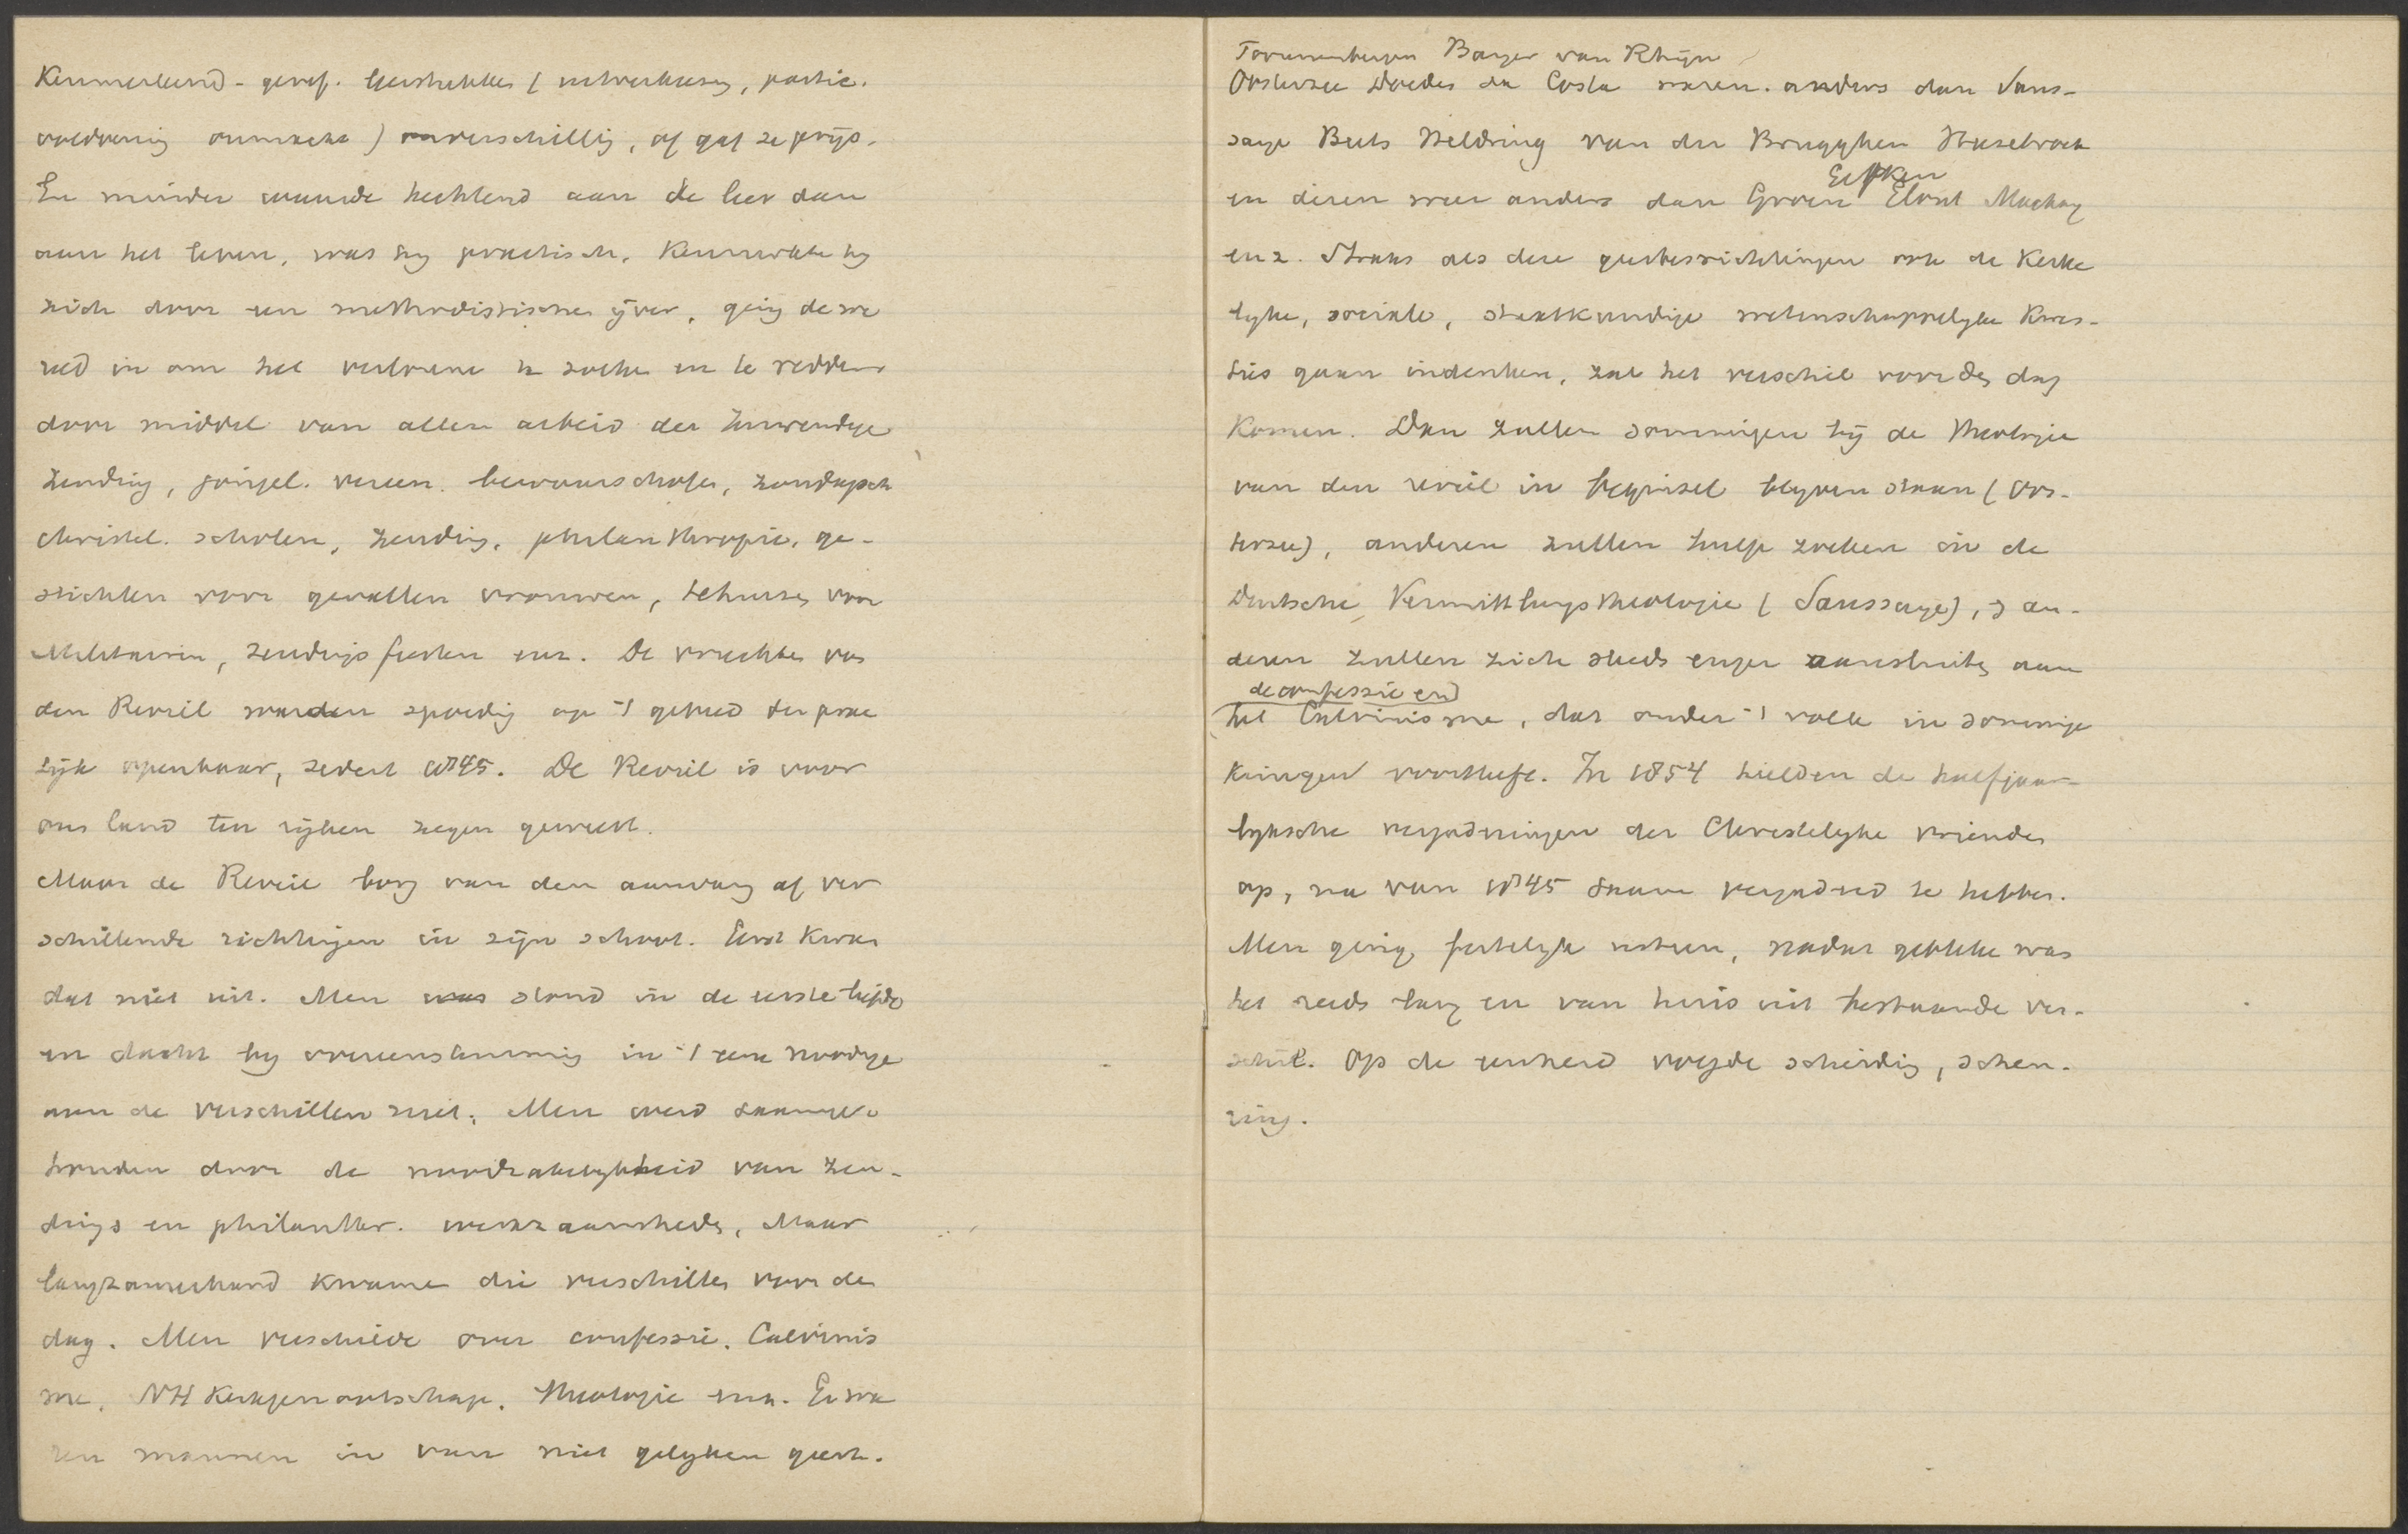 Kenmerkend-geref. leerstukken (uitverkiezing, partic.
voldoening onmacht) onverschillig, of gaf ze prijs.
En minder waarde hechtend aan de leer dan
aan het leven, was hy practisch. Kenmerkte hy
zich door een methodistischen ijver, ging de we
reld in om het verlorene te zoeken en te redden
door middel van allen arbeid der Inwendige
Zending, jongel. vereen. bewaarscholen, zondagsch
christel. scholen, zending, philanthropie, ge-
stichten voor gevallen vrouwen, tehuizen voor
Militairen, zendingsfeesten enz. De vruchten van
den Reveil werden spoedig op 't gebied der prac
tijk openbaar, sedert 1845. De Reveil is voor
ons land ten rijken zegen geweest.
Maar de Reveil borg van den aanvang af ver
schillende richtingen in zijn schoot. Eerst kwam
dat niet uit. Men stond in de eerste liefde
en dacht by overeenstemming in 't eene noodige
aan de verschillen niet. Men werd saamge-
houden door de noodzakelykheid van zen-
dings en philanthr. werkzaamheden, Maar
langzamerhand kwamen die verschillen voor den
dag. Men verschilde over confessie, Calvinis
me, NH Kerkgenootschap, theologie enz. Er wa
ren mannen in van niet gelyken geest.
Toorenenbergen Barger van Rhijn
Oosterzee Doedes da Costa waren anders dan Saus-
saye Beets Heldring van der Brugghen Hasebroek
en dezen weer anders dan Groen Elout Mackay
enz. Straks als deze geestesrichtingen ook de Kerke
lyke, sociale, staatkundige wetenschappelyke kwes-
ties gaan indenken, zal het verschil voor den dag
komen. Dan zullen sommigen bij de theologie
van den reveil in beginsel blyven staan (Oos-
terzee), anderen zullen hulp zoeken in de
Duitsche Vermittlungstheologie (Saussaye), an-
deren zullen zich steeds enger aansluiten aan
de confessie en
het Calvinisme, dat onder 't volk in sommige
kringen voortleeft. In 1854 hielden de halfjaar-
lyksche vergaderingen der Christelyke vrienden
op, na van 1845 saam vergaderd te hebben.
Men ging feitelyk uiteen, nadat gebleken was
het reeds lang en van huis uit bestaande ver-
schil. Op de eenheid volgde scheiding, scheu-
ring.